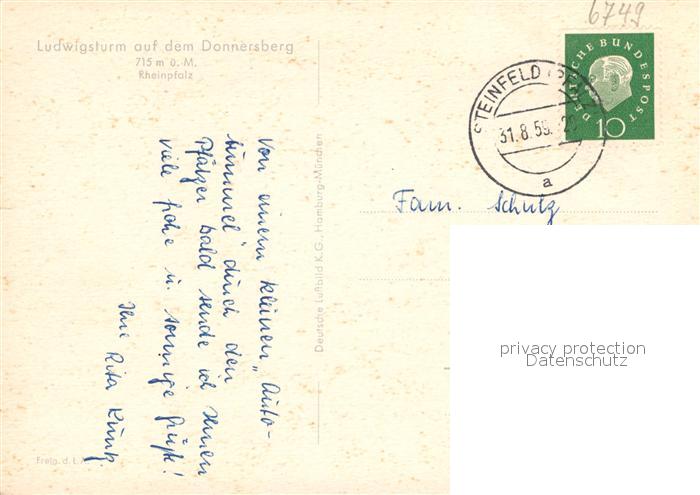 6749
Ludwigsturm auf dem Donnersberg
715 m ü. M.
Rheinpfalz
DEUTSCHE BUNDESPOST
10
STEINFELD (PFALZ)
31.8.59
a
Fam. Schulz
Von einem kleinen „Auto-
bummel" durch den
Pfälzer Wald sende ich Ihnen
viele frohe u. sonnige Grüße!
Ihre Rita Kunz.
Deutsche Luftbild K.G., Hamburg-München
Freig. d. L.A.
privacy protection
Datenschutz